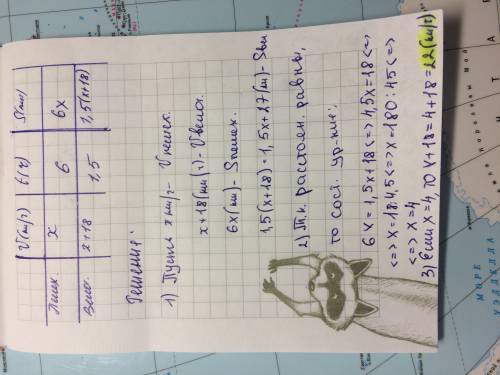 V(км/ч) t(ч) S(км)
Пешех. x 6 6x
Вело. x+18 1,5 1,5(x+18)
Решение:
1) Пусть x км/ч - Vпешех.
x+18(км/ч) - Vвелос.
6x(км) - Sпешех.
1,5(x+18)=1,5x+27(км) - Sвел
2) Т.к. расстоян. равны,
то сост. ур-ние:
6x=1,5x+18<=>4,5x=18<=>
<=>x=18:4,5<=>x=180:45<=>
<=>x=4
3) Если x=4, то x+18=4+18=22(км/ч)
МОРЕ
УЭДДЕЛЛА